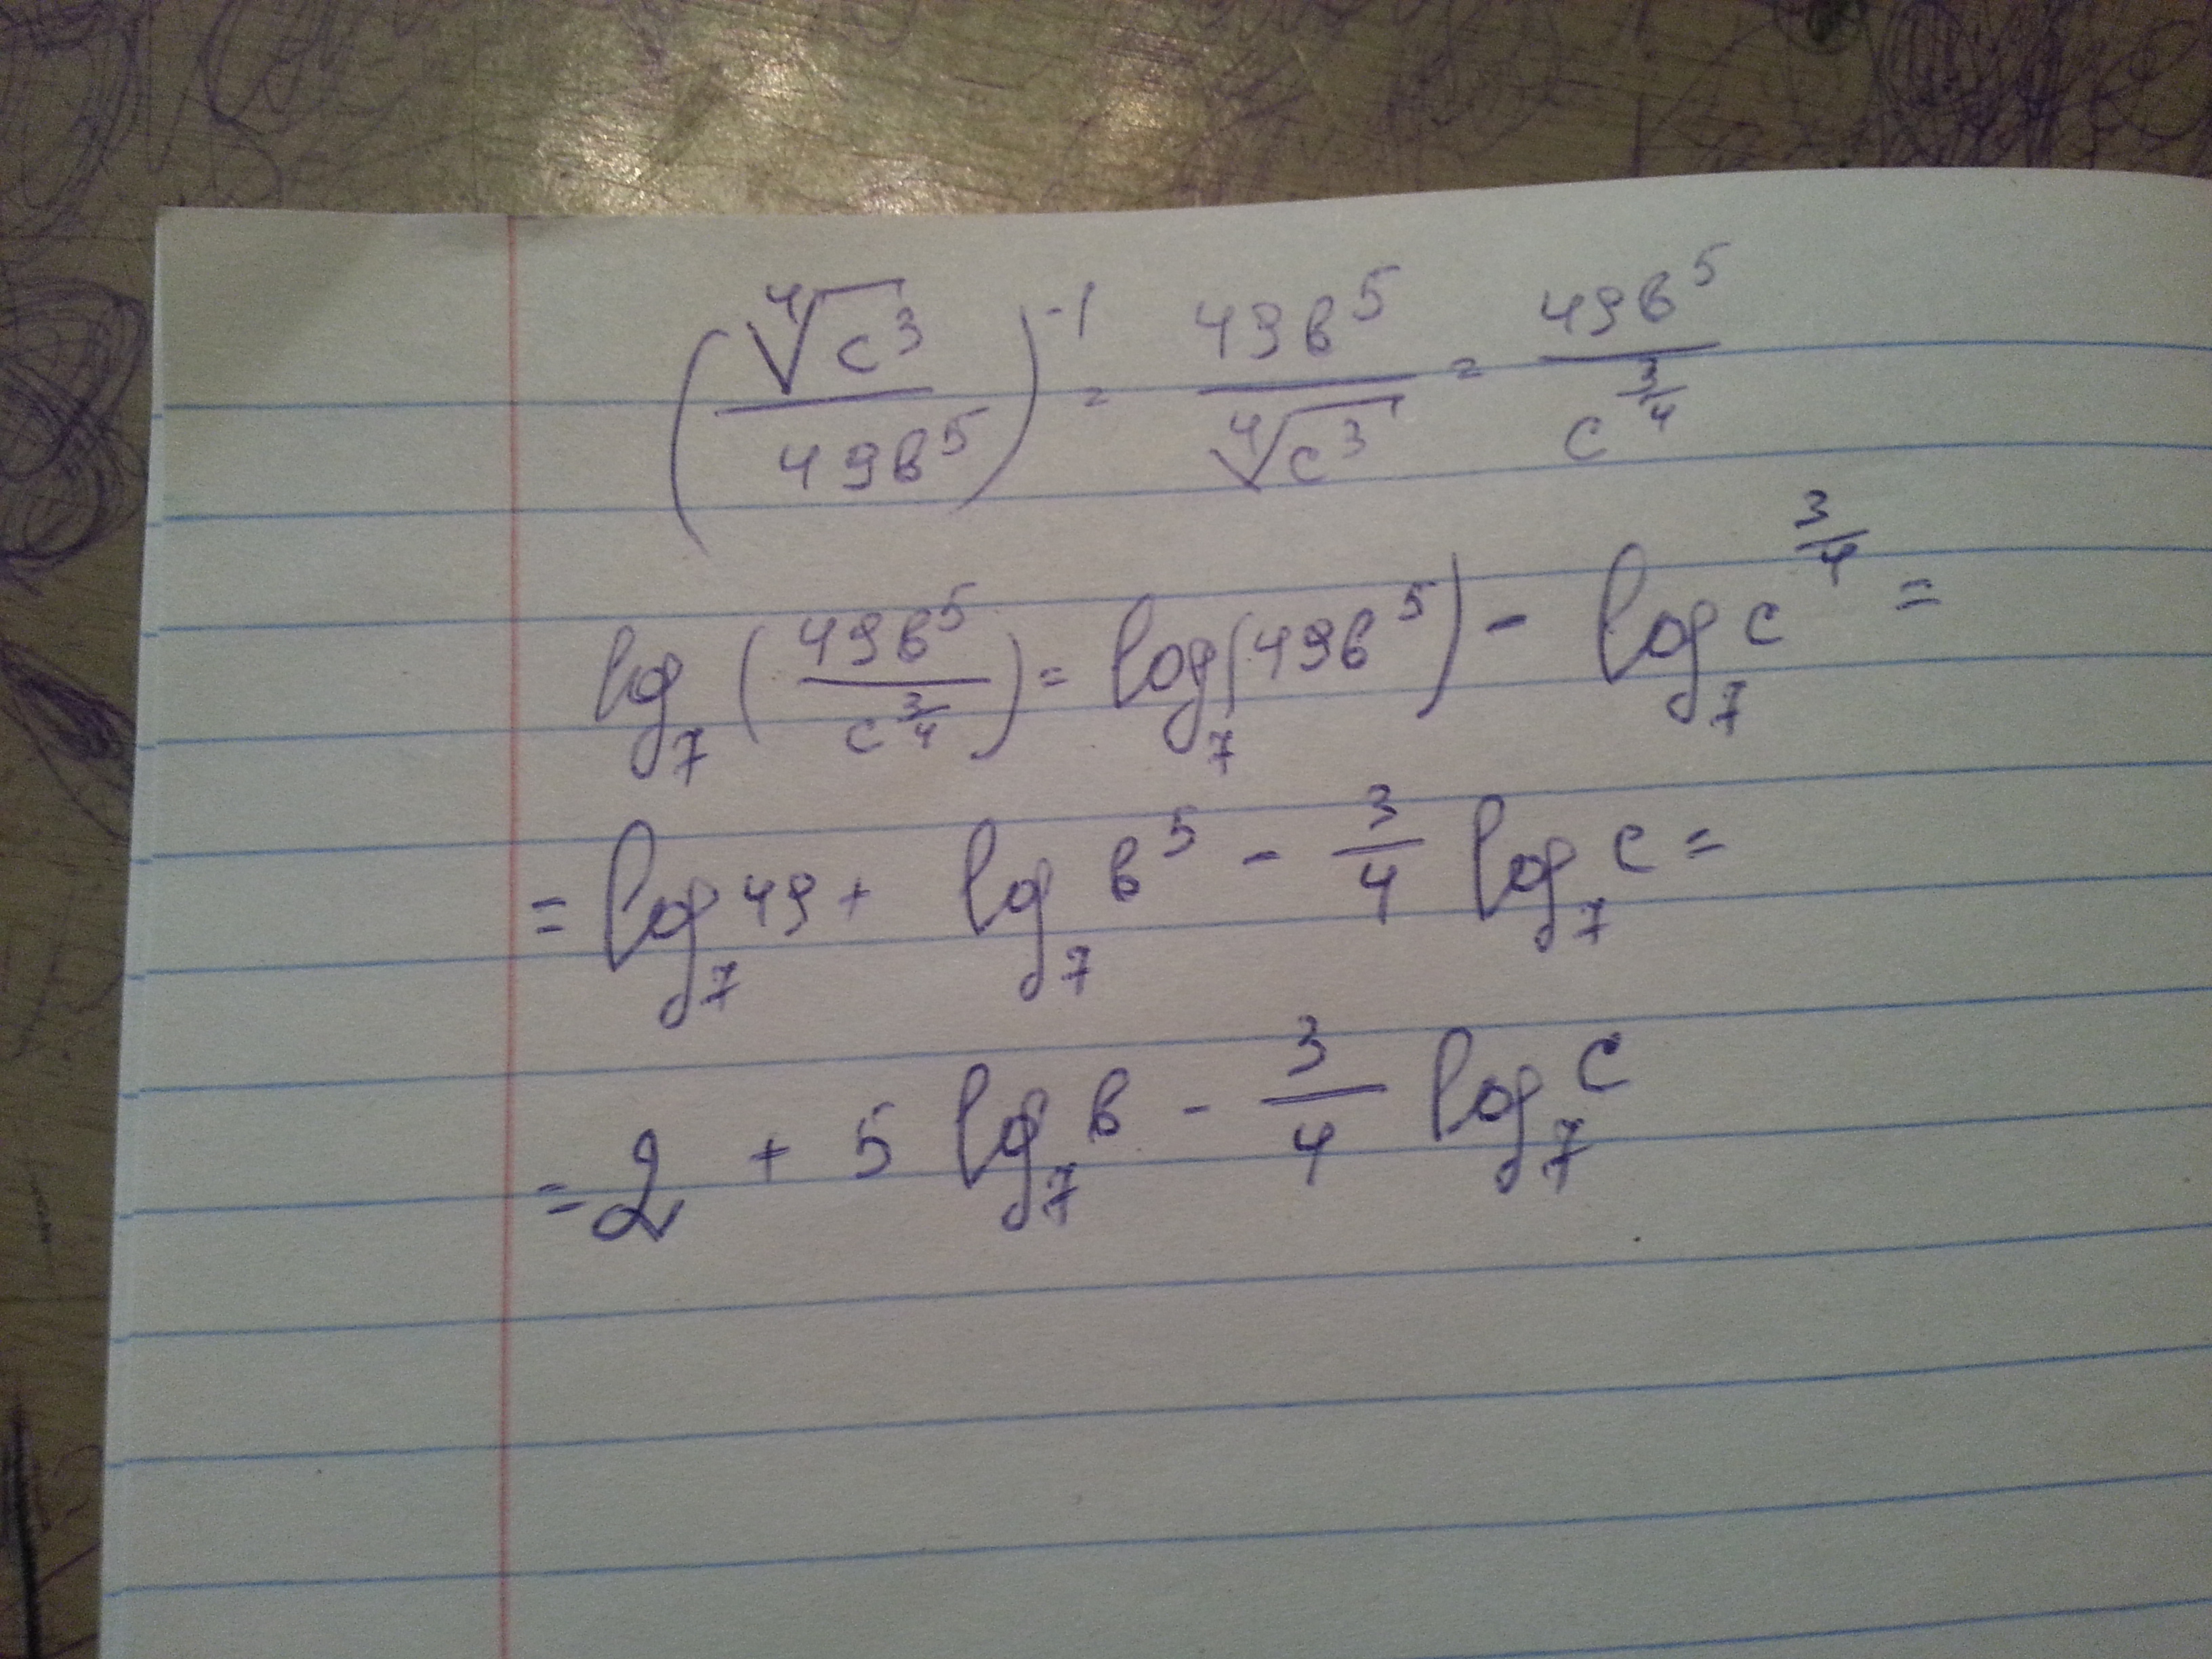 (⁴√c³ / 49b⁵)⁻¹ = 49b⁵ / ⁴√c³ = 49b⁵ / c^(3/4)
log₇(49b⁵ / c^(3/4)) = log₇(49b⁵) - log₇ c^(3/4) =
= log₇ 49 + log₇ b⁵ - 3/4 log₇ c =
= 2 + 5 log₇ b - 3/4 log₇ c